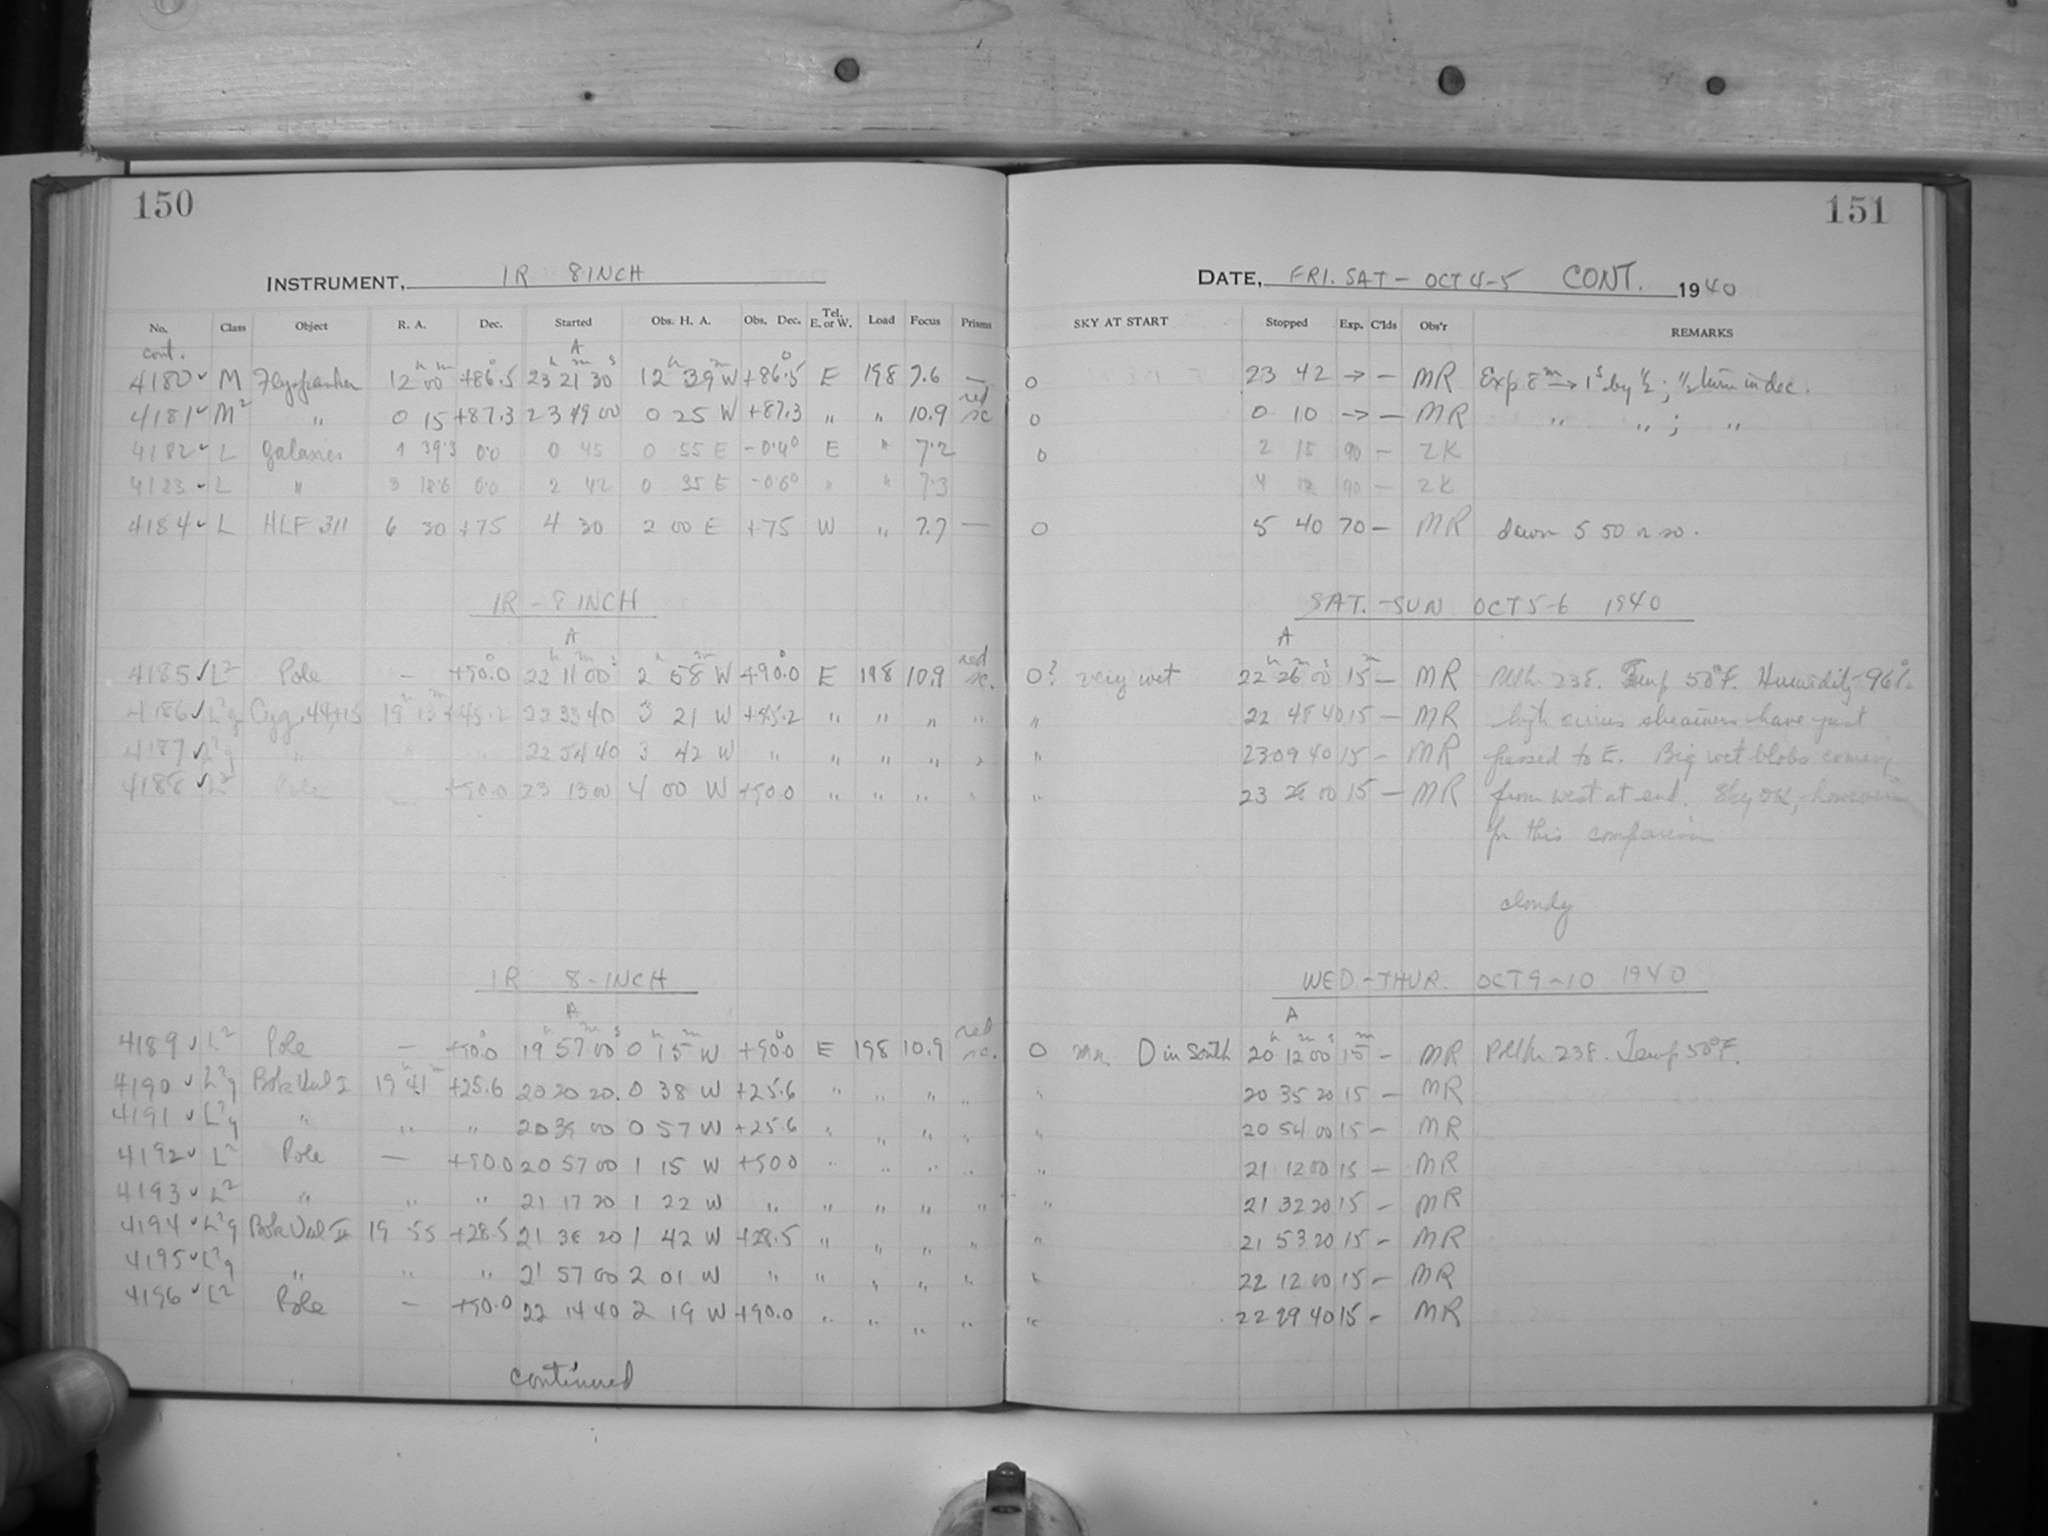 150
INSTRUMENT, IR 8 INCH
No. Class Object R. A. Dec. Started Obs. H. A. Obs. Dec. Tel. E. or W. Load Focus Prisms
cont. A
h m ° h m s h m °
4180 ✓ M 12 00 +86.5 23 21 30 12 39 W +86.5 E 198 7.6 —
4181 ✓ M² " 0 15 +87.3 23 49 00 0 25 W +87.3 " " 10.9 red sc
4182 ✓ L galaxies 1 39.3 0.0 0 45 0 55 E -0.4° E " 7.2
4183 ✓ L " 3 18.6 0.0 2 42 0 35 E -0.6° " " 7.3
4184 ✓ L HLF 311 6 30 +75 4 30 2 00 E +75 W " 7.7 —
IR - 8 INCH
A
4185 ✓ L² Pole — +90.0 22 11 00 2 58 W +90.0 E 198 10.9 red sc.
4186 ✓ L²g Cyg. 44+15 19 13 +45.2 22 33 40 3 21 W +45.2 " " " "
4187 ✓ L²g " " " 22 54 40 3 42 W " " " " "
4188 ✓ L² Pole — +90.0 23 13 00 4 00 W +90.0 " " " "
IR 8-INCH
A
4189 ✓ L² Pole — +90.0 19 57 00 0 15 W +90.0 E 198 10.9 red sc.
4190 ✓ L²g Bok Vul I 19 41 +25.6 20 20 20 0 38 W +25.6 " " " "
4191 ✓ L²g " " " 20 39 00 0 57 W +25.6 " " " "
4192 ✓ L² Pole — +90.0 20 57 00 1 15 W +90.0 " " " "
4193 ✓ L² " " " 21 17 20 1 22 W " " " " "
4194 ✓ L²g Bok Vul II 19 55 +28.5 21 38 20 1 42 W +28.5 " " " "
4195 ✓ L²g " " " 21 57 00 2 01 W " " " " "
4196 ✓ L² Pole — +90.0 22 14 40 2 19 W +90.0 " " " "
continued
151
DATE, FRI. SAT - OCT 4-5 CONT. 1940
SKY AT START Stopped Exp. C'lds Obs'r REMARKS
0 23 42 → — MR Exp 8ᵐ → 1ˢ by ½; ½ turn in dec.
0 0 10 → — MR " " ; "
0 2 15 90 — ZK
4 12 90 — ZK
0 5 40 70 — MR dawn 5 50 or so.
SAT. - SUN OCT 5-6 1940
A
0? very wet 22 26 00 15 — MR 238. Temp 58°F. Humidity 96%
" 22 48 40 15 — MR high cirrus streamers have just
" 23 09 40 15 — MR passed to E. Big wet blobs coming
" 23 28 00 15 — MR from west at end. Sky OK, however
for this comparison
cloudy
WED. - THUR. OCT 9-10 1940
A
0 in South 20 12 00 15 — MR 238. Temp 50°F.
" 20 35 20 15 — MR
" 20 54 00 15 — MR
" 21 12 00 15 — MR
" 21 32 20 15 — MR
" 21 53 20 15 — MR
" 22 12 00 15 — MR
" 22 29 40 15 — MR